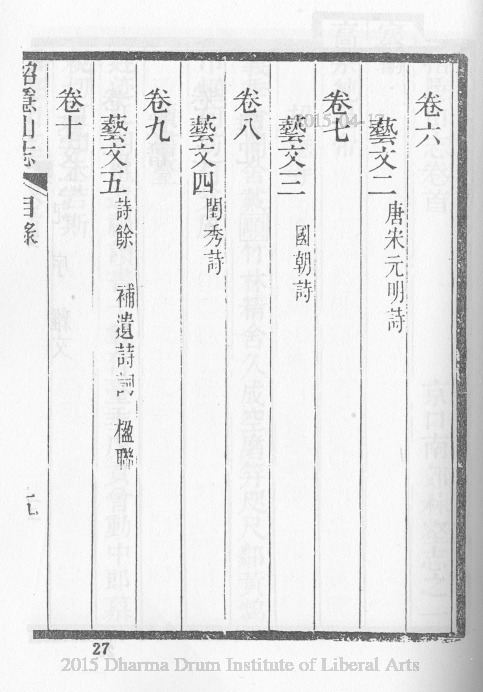 卷六
藝文二 唐宋元明詩
卷七
藝文三 國朝詩
卷八
藝文四 閨秀詩
卷九
藝文五 詩餘 補遺詩詞 楹聯
卷十
招隱山志 目錄 九
27
2015 Dharma Drum Institute of Liberal Arts